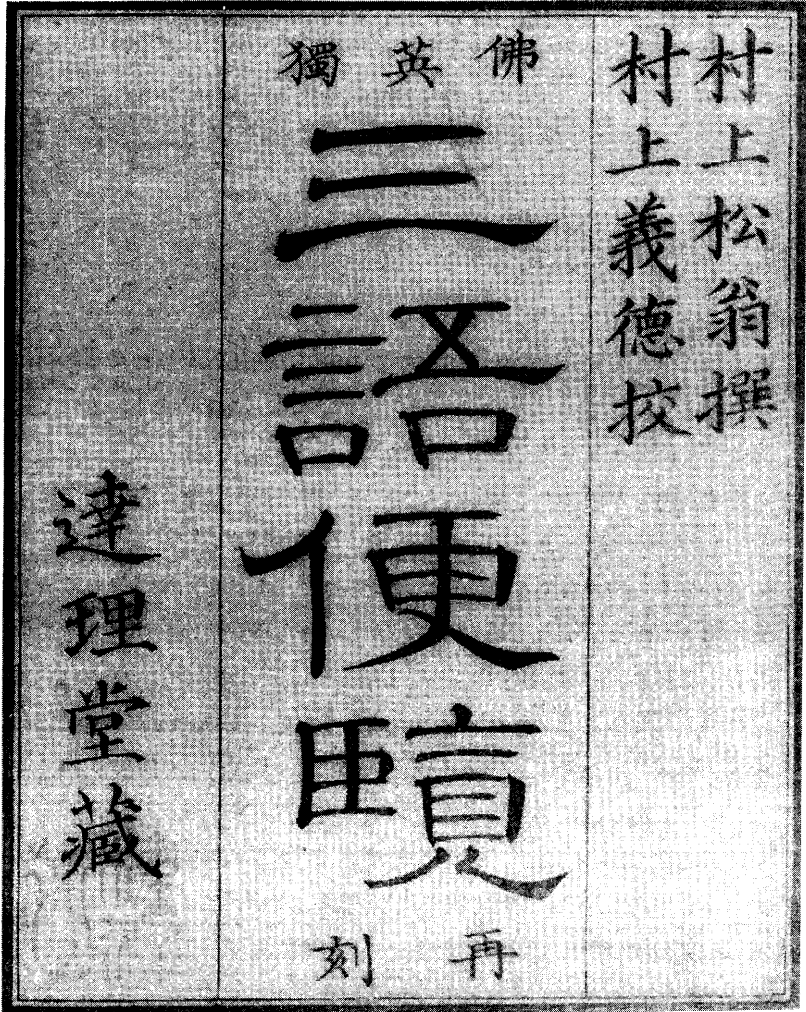 村上松翁撰
村上義德挍
佛英獨
三語便覽
再刻
達理堂藏